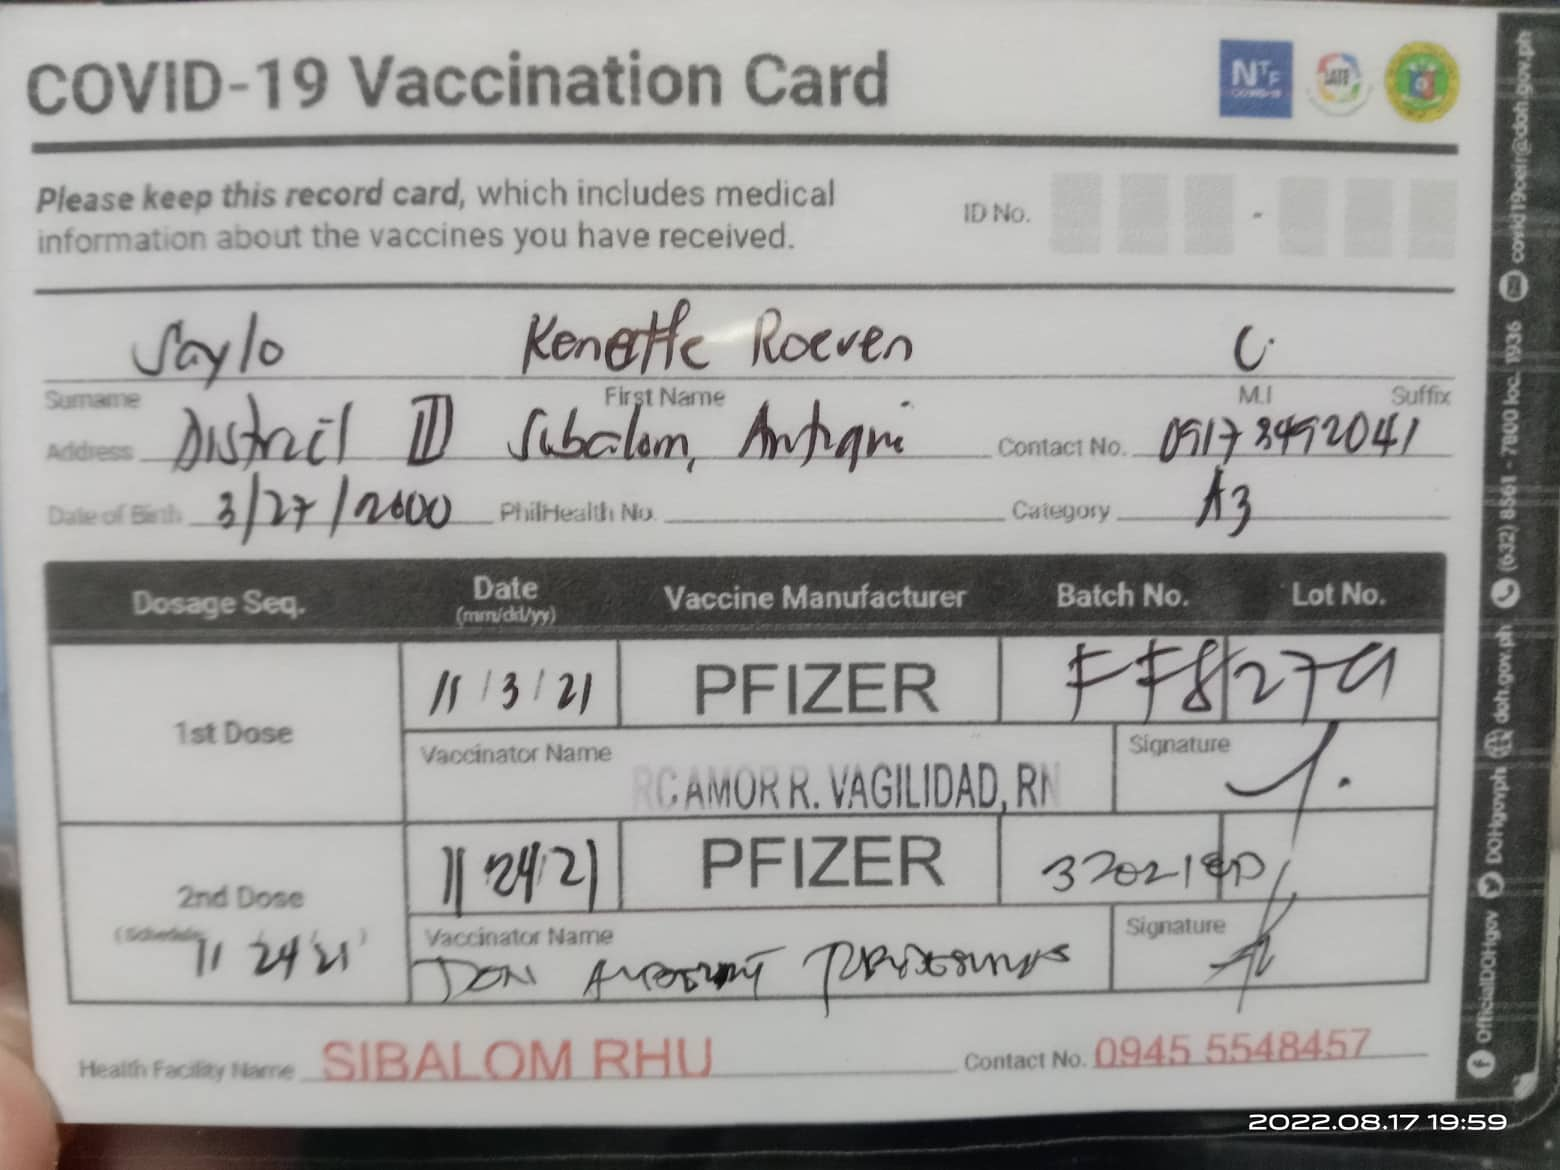 COVID-19 Vaccination Card
NTF
COVID-19
Please keep this record card, which includes medical
information about the vaccines you have received.
ID No. -
Saylo Kenette Roeven C.
Surname First Name M.I Suffix
Address District III Sibalom, Antique Contact No. 09173492041
Date of Birth 3/27/2000 PhilHealth No. Category A3
Dosage Seq. Date (mm/dd/yy) Vaccine Manufacturer Batch No. Lot No.
1st Dose 11/3/21 PFIZER FF8279
Vaccinator Name RCAMOR R. VAGILIDAD, RN Signature
2nd Dose 11 24 21 PFIZER
(Schedule 11 24 21) Vaccinator Name Signature
Health Facility Name SIBALOM RHU Contact No. 0945 5548457
OfficialDOHgov DOHgovph doh.gov.ph (632) 8651 - 7800 loc. 1936 covid19ceir@doh.gov.ph
2022.08.17 19:59